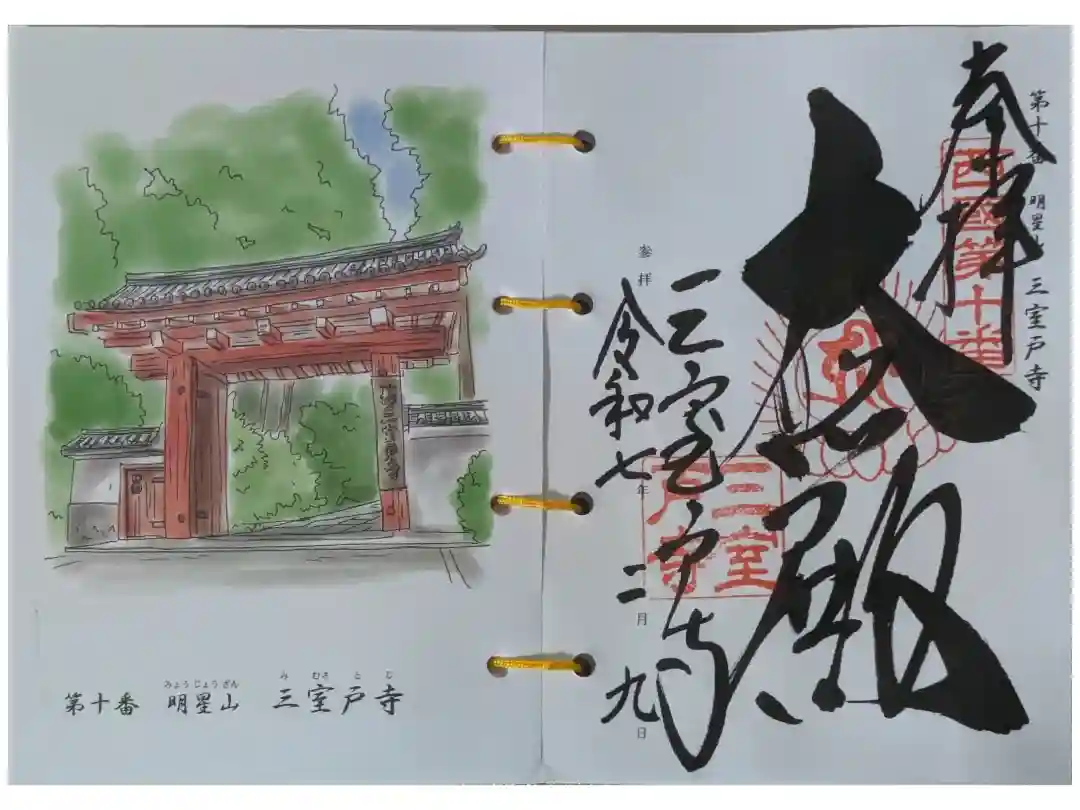 みょうじょうざん み むろ と じ
第十番 明星山 三室戸寺
第十番 明星山 三室戸寺
奉拝
西國第十番
大悲殿
三室戸寺
三室戸寺
参拝 令和七年二月九日